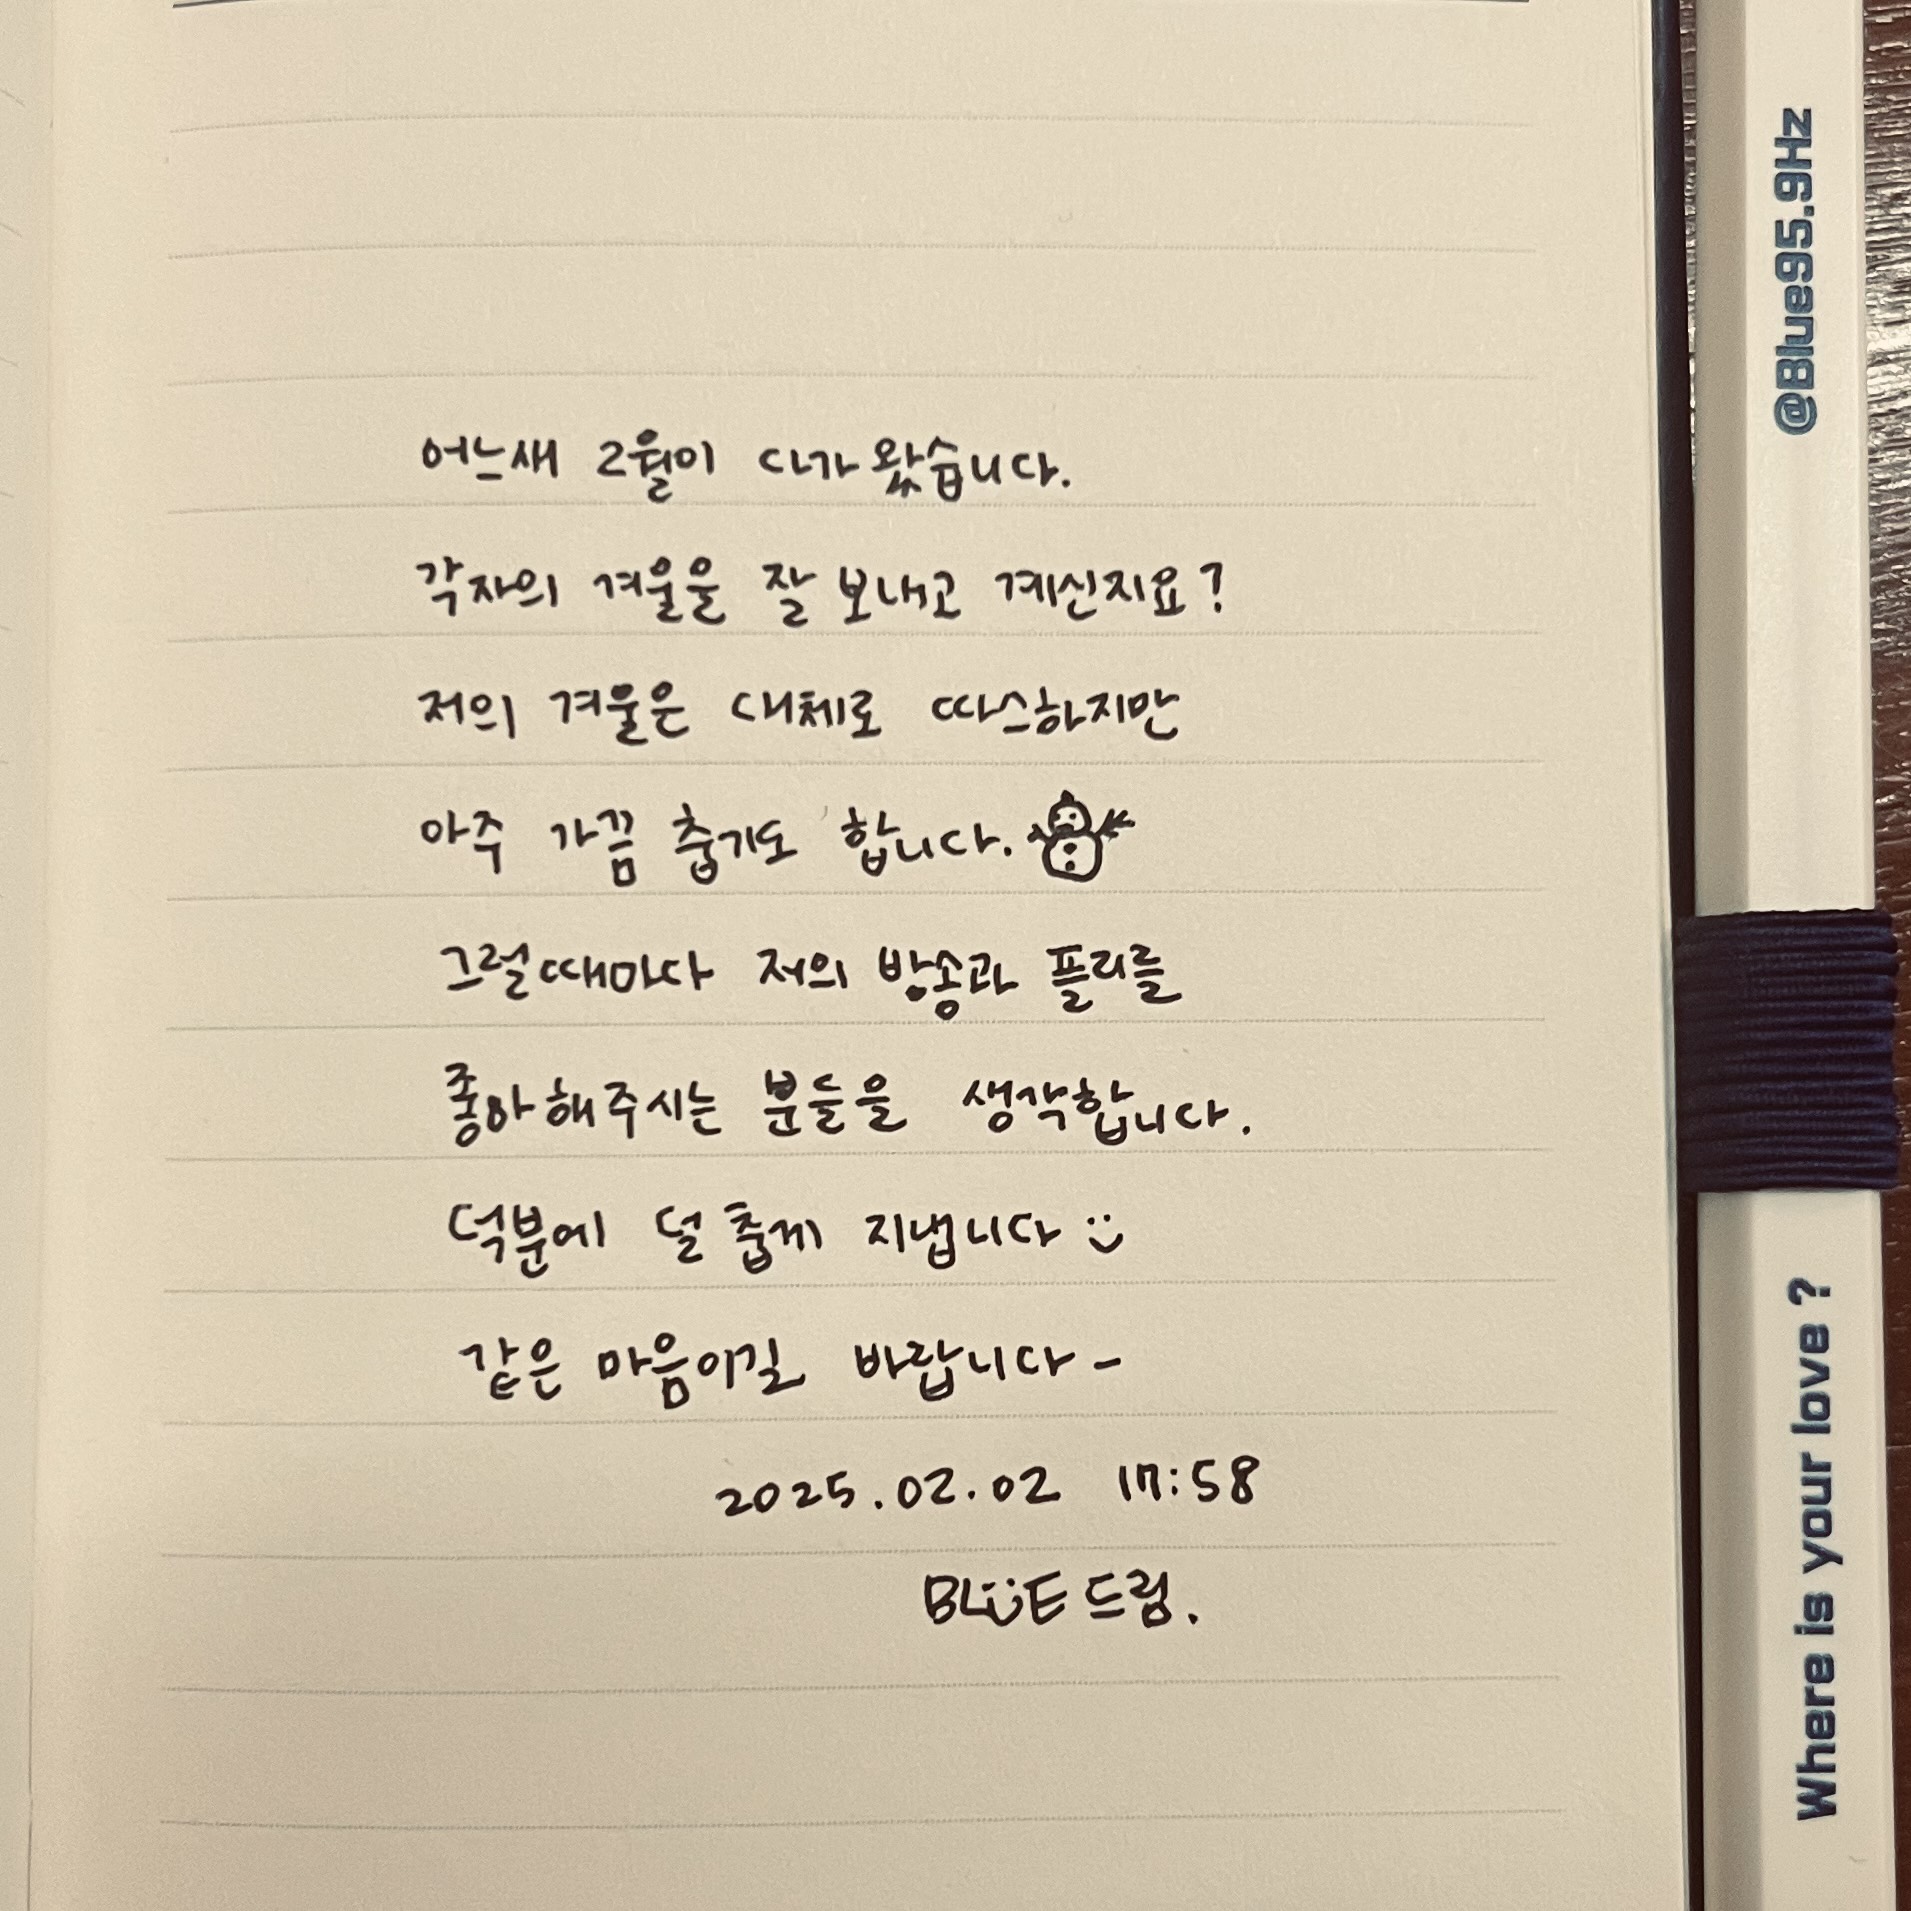 어느새 2월이 다가 왔습니다.
각자의 겨울을 잘 보내고 계신지요?
저의 겨울은 대체로 따스하지만
아주 가끔 춥기도 합니다.
그럴때마다 저의 방송과 플리를
좋아해주시는 분들을 생각합니다.
덕분에 덜 춥게 지냅니다
같은 마음이길 바랍니다-
2025.02.02 17:58
BLUE 드림.
@Blue95.9Hz
Where is your love ?